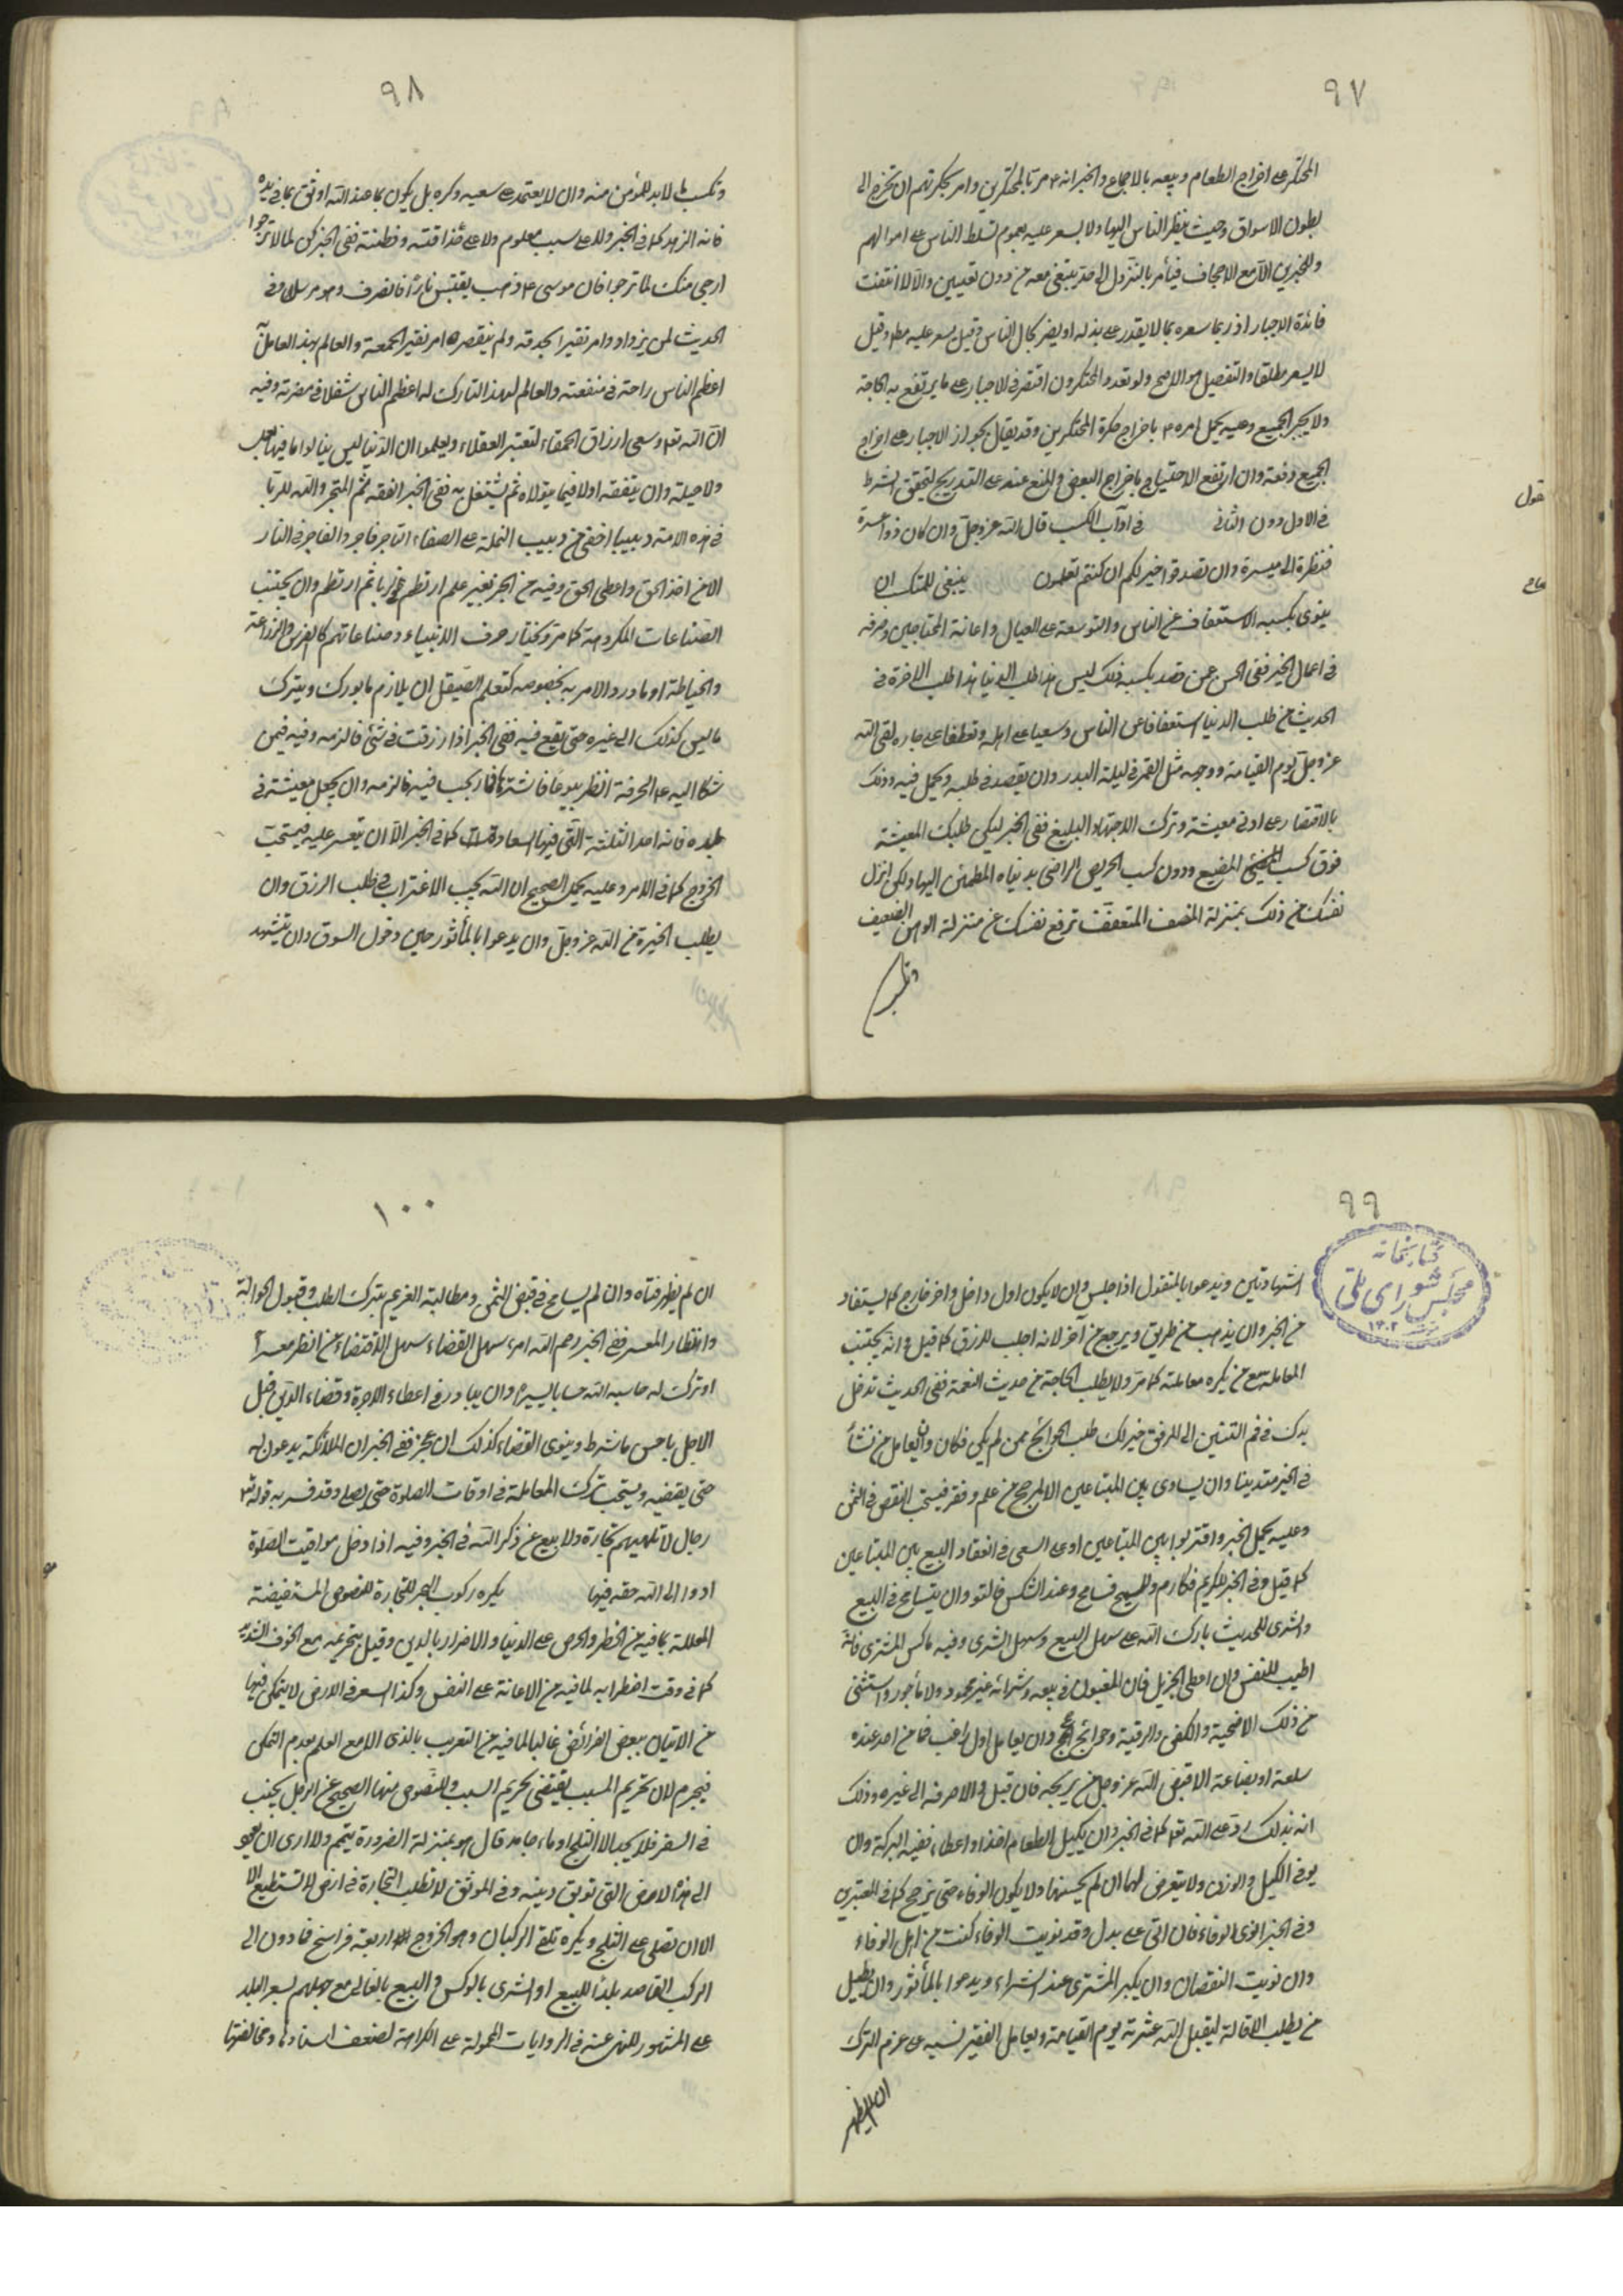 ٩٧
المحتكر على اخراج الطعام وبيعه بالاجماع والخبر انه ۴ مر بالمحتكرين وامر بحكرتهم ان تخرج الى
بطون الاسواق وحيث ينظر الناس اليها ولا يسعر عليه لعموم تسلط الناس على اموالهم
وللخبرين الا مع الاجحاف فيأمر بالنزول الى حد ينتفى معه من دون تعيين والا لانتفت
فائدة الاجبار اذ ربما سعره بما لا يقدر على بذله او يضر بحال الناس وقيل يسعر عليه مطلقا وقيل
لا يسعر مطلقا والتفصيل هو الاصح ولو تعدد المحتكرون اقتصر فى الاجبار على ما يرتفع به الحاجة
ولا يجبر الجميع وعليه يحمل امره ۴ باخراج حكرة المحتكرين وقد يقال بجواز الاجبار على اخراج
الجميع دفعة وان ارتفع الاحتياج باخراج البعض والمنع عنه على التدريج لتحقق الشرط
فى الاول دون الثانى فى آداب الكسب قال الله عز وجل وان كان ذو عسرة
قول
فنظرة الى ميسرة وان تصدقوا خير لكم ان كنتم تعلمون ينبغى للمتكسب ان
ينوى بكسبه الاستعفاف عن الناس والتوسعة على العيال واعانة المحتاجين وصرفه
فى اعمال الخير ففى الحسن عمن قصد بكسبه ذلك ليس هذا طلب الدنيا هذا طلب الاخرة فى
الحديث من طلب الدنيا استعفافا عن الناس وسعيا على اهله وتعطفا على جاره لقى الله
عز وجل يوم القيامة ووجهه مثل القمر فى ليلة البدر وان يقصد فى طلبه ويجمل فيه وذلك
بالاقتصار على ادنى معيشة وترك الاجتهاد البليغ ففى الخبر ليكن طلبك المعيشة
فوق كسب المضيع ودون كسب الحريص الراضى بدنياه المطمئن اليها ولكن انزل
نفسك من ذلك بمنزلة المنصف المتعفف ترفع نفسك عن منزلة الواهن الضعيف
وتكسب
٩٨
وتكسب ما لا بد للمؤمن منه وان لا يعتمد على سعيه وكده بل يكون بما عند الله اوثق بما فى يده
فانه الزهد كما فى الخبر ولا على سبب معلوم ولا على حذاقته وفطنته ففى الخبر كن لما لا ترجوا
ارجى منك لما ترجوا فان موسى ۴ ذهب يقتبس نارا فانصرف وهو مرسل وفى
الحديث لمن يزداد امرء نقيرا بحذقه ولم ينتقص امرء نقيرا لحمقه والعالم بهذا العامل به
اعظم الناس راحة فى منفعته والعالم لهذا التارك له اعظم الناس شغلا فى مضرته وفيه
ان الله تعالى وسع ارزاق الحمقاء لتعتبر العقلاء ويعلموا ان الدنيا ليس ينالوا ما فيها بعمل
ولا حيلة وان يتفقه اولا فيما يتولاه ثم يشتغل به ففى الخبر الفقه ثم المتجر والله للربا
فى هذه الامة دبيبا اخفى من دبيب النملة على الصفاء التاجر فاجر والفاجر فى النار
الا من اخذ الحق واعطى الحق وفيه من اتجر بغير علم ارتطم فى الربا ثم ارتطم وان يجتنب
الصناعات المكروهة كما مر ويختار حرف الانبياء وصناعاتهم كالغرس والزراعة
والخياطة او ما ورد الامر به بخصوصه كتعلم الصيقل وان يلازم ما بورك ويترك
ما ليس كذلك الى غيره حتى يقع فيه ففى الخبر اذا رزقت فى شئ فالزمه وفيه فيمن
شكا اليه ۴ الحرفة انظر بيوعا فاشترها فما ربحت فيه فالزمه وان يجعل معيشته فى
بلده فانه احد الثلثة التى فيها السعادة كما فى الخبر الا ان تعسر عليه فيستحب
الخروج كما فى الامر وعليه يحمل الصحيح ان الله يحب الاغتراب فى طلب الرزق وان
يطلب الخيرة من الله عز وجل وان يدعوا بالمأثور حين دخول السوق وان يتشهد
٩٩
كتابخانه مجلس شوراى ملى ١٣٠٢
الشهادتين ويدعوا بالمنقول اذا جلس وان لا يكون اول داخل واخر خارج كما يستفاد
من الخبر وان يذهب من طريق ويرجع من آخر لانه اجلب للرزق كما قيل وانه يجتنب
المعاملة مع من يكره معاملته كما مر ولا يطلب الحاجة من حديث النعمة ففى الحديث تدخل
يدك فى فم التنين الى المرفق خير لك من طلب الحوائج ممن لم يكن فكان وان يعامل من نشأ
فى الخير متدينا وان يساوى بين المبتاعين الا لمرجح من علم وفقر فيستحب النقص فى الثمن
وعليه يحمل الخبر واقتربوا بين المبتاعين او على السعى فى انعقاد البيع بين المبتاعين
كما قيل وفى الخبر للكريم فكارم وللسمح فسامح وعند الشكس فالتو وان يتسامح فى البيع
والشرى للحديث بارك الله على سهل البيع وسهل الشرى وفيه ماكس المشترى فانه
اطيب للنفس وان اعطى الجزيل فان المغبون فى بيعه وشرائه غير محمود ولا مأجور واستثنى
من ذلك الاضحية والكفن والرقيق وحوائج الحج وان يعامل اول راغب فما من احد عنده
سلعة او بضاعة الا قيض الله عز وجل من يربحه فان قبل والا صرفه الى غيره وذلك
انه بذلك رد على الله تعالى كما فى الخبر وان يكيل الطعام اخذا واعطاء ففيه البركة وان
يوفى الكيل والوزن ولا يتعرض لهما ان لم يحسنهما ولا يكون الوفاء حتى يرجح كما فى المعتبرين
وفى الخبر انوى الوفاء فان اتى على يدك وقد نويت الوفاء كنت من اهل الوفاء
وان نويت النقصان وان يكبر المشترى عند الشراء ويدعوا بالمأثور وان يقيل
من يطلب الاقالة ليقيل الله عثرته يوم القيامة ويعامل الفقير نسية على عزم الترك
ان لم يظهر
١٠٠
ان لم يظهر فتاه وان لم يسامح فى قبض الثمن ومطالبة الغريم بترك الطلب وقبول الحوالة
وانتظار المعسر ففى الخبر رحم الله امرء سهل القضاء سهل الاقتضاء من انظر معسرا
او ترك له حاسبه الله حسابا يسيرا وان يبادر فى اعطاء الاجرة وقضاء الدين قبل
الاجل باحسن ما شرط وينوى القضاء كذلك ان عجز ففى الخبر ان الملائكة يدعون له
حتى يقضيه ويستحب ترك المعاملة فى اوقات الصلوة حتى يصلى وقد فسر به قوله تعالى
رجال لا تلهيهم تجارة ولا بيع عن ذكر الله فى الخبر وفيه اذا دخل مواقيت الصلوة
ادوا الى الله حقه فيها يكره ركوب البحر للتجارة للنصوص المستفيضة
المعللة بما فيه من الخطر والحرص على الدنيا والاضرار بالدين وقيل بتحريمه مع الخوف الشديد
كما فى وقت اضطرابه لما فيه من الاعانة على النفس وكذا السفر فى الارض لا يتمكن فيها
من الاتيان ببعض الفرائض غالبا لما فيه من التعرب بالذى الا مع العلم بعدم التمكن
فيحرم لان تحريم المسبب يقتضى تحريم السبب وللنصوص منها الصحيح عن الرجل يجنب
فى السفر فلا يجد الا الثلج او ماء جامد قال هو بمنزلة الضرورة يتيمم ولا ارى ان يعود
الى هذه الارض التى توبق دينه وفى الموثق لا تطلب التجارة فى ارض لا تستطيع الا
الا ان تصلى على الثلج ويكره تلقى الركبان وهو الخروج الى اربعة فراسخ فما دون الى
الركب القاصد بلدا للبيع او الشرى بالوكس والبيع بالغالى مع جهلهم بسعر البلد
على المشهور للنهى عنه فى الروايات المحمولة على الكراهة لضعف اسنادها ومخالفتها